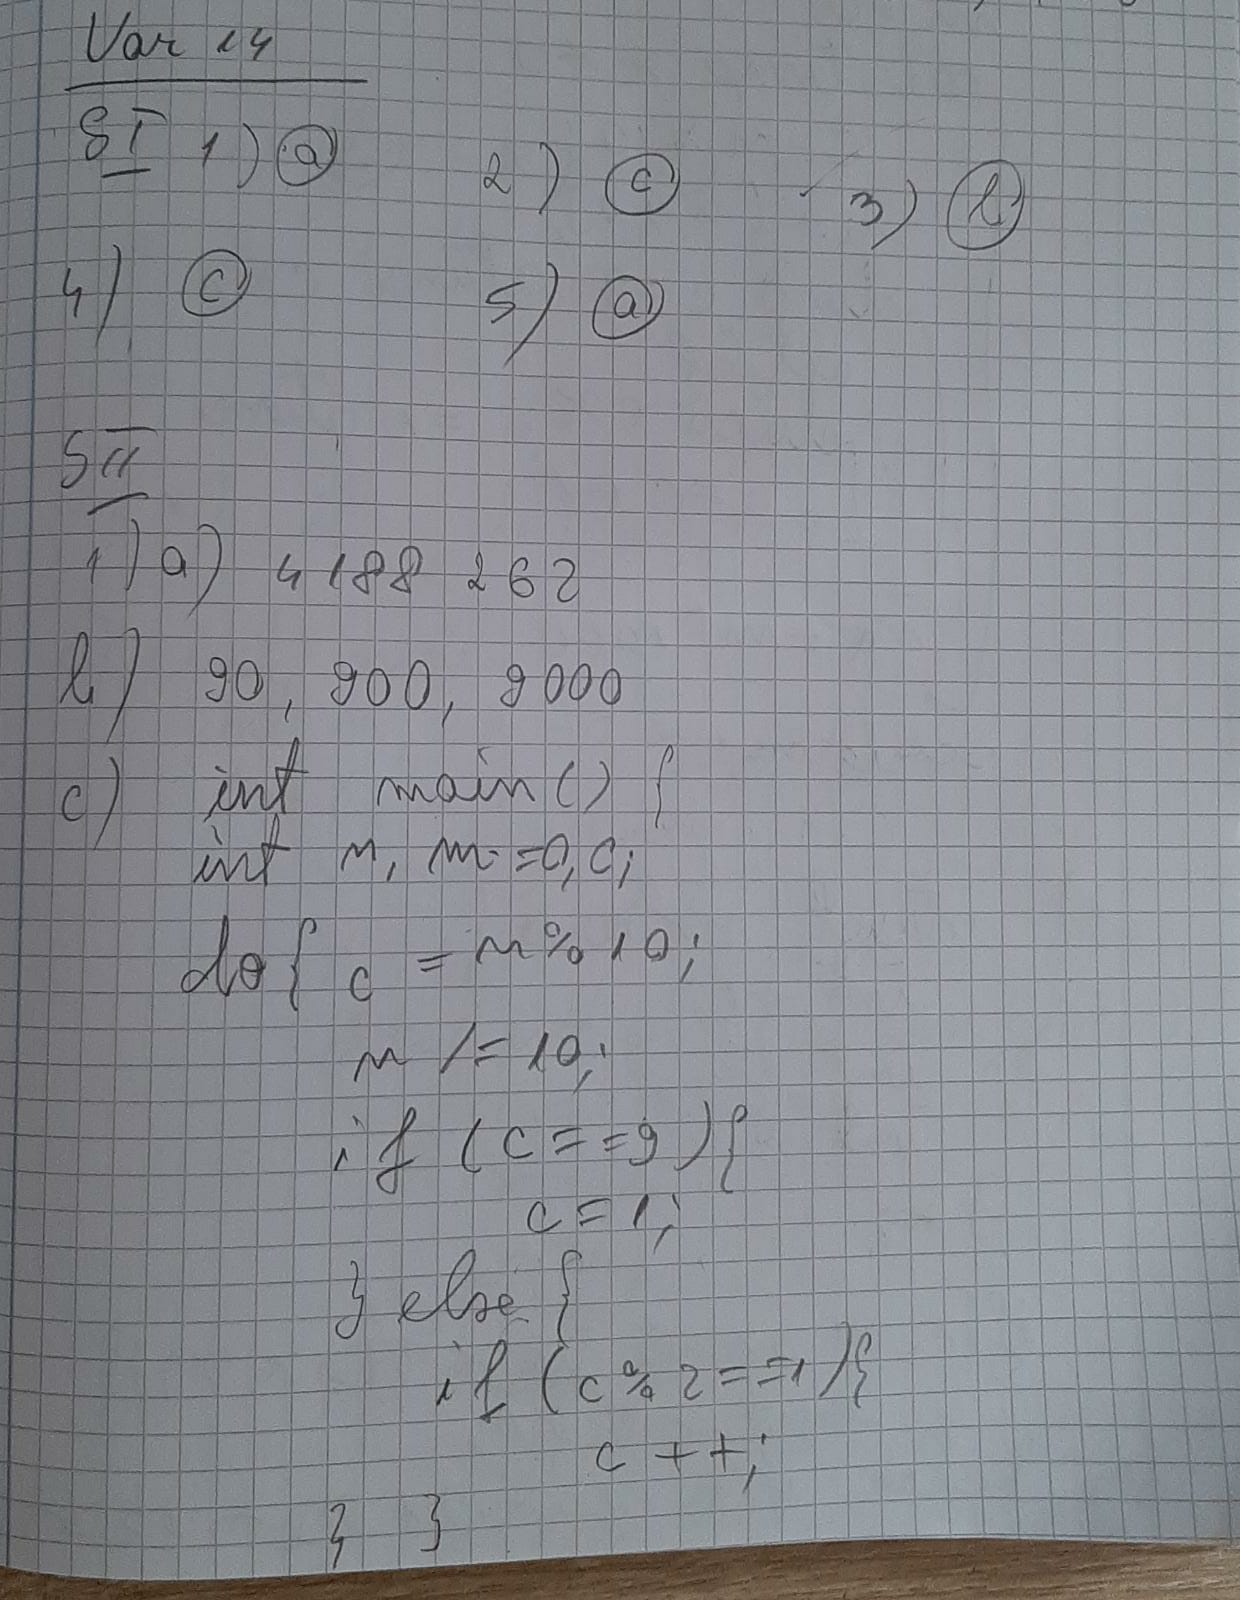 Var 14
SI 1) a 2) c 3) b
4) c 5) a
SII
1) a) 4188 262
b) 90, 900, 9000
c) int main() {
int n, m=0, c;
do { c = n%10;
n /= 10;
if (c==9){
c = 1;
} else {
if (c%2==1){
c++;
} }